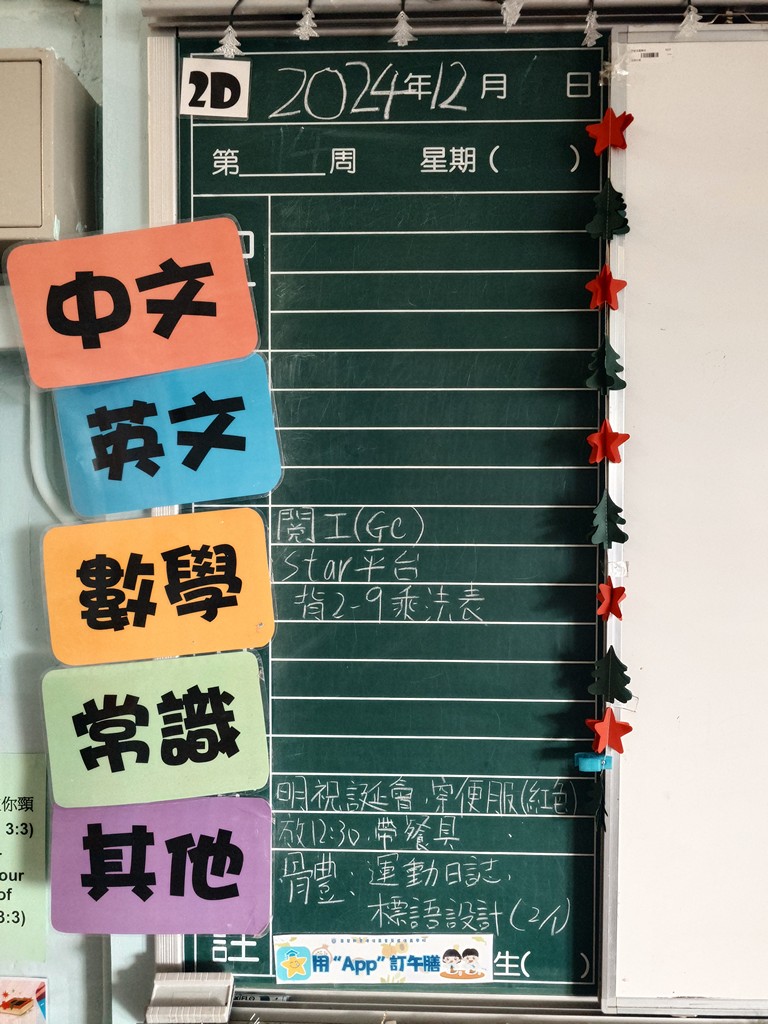 2D
2024年12月 日
第 周 星期( )
中文
英文
閱工(GC)
Star平台
數學
背2-9乘法表
常識
明祝誕會,穿便服(紅色)
放12:30,帶餐具
其他
體:運動日誌,
標語設計(2/1)
註
用“App”訂午膳
生( )
你頸
3:3)
our
of
3:3)